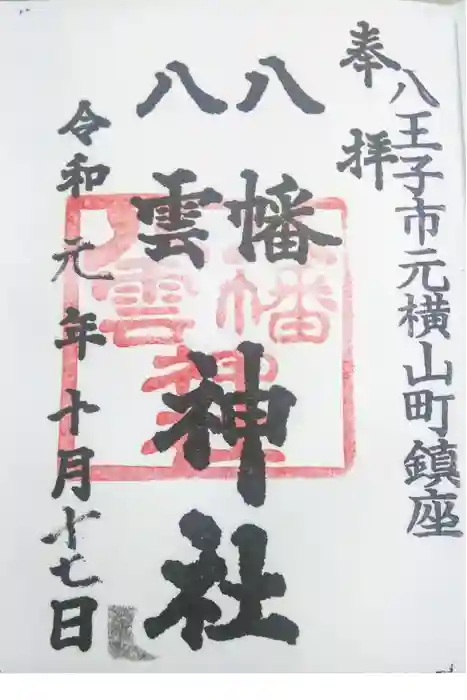 八王子市元横山町鎮座
奉拝
八幡
八雲
神社
令和元年十月十七日